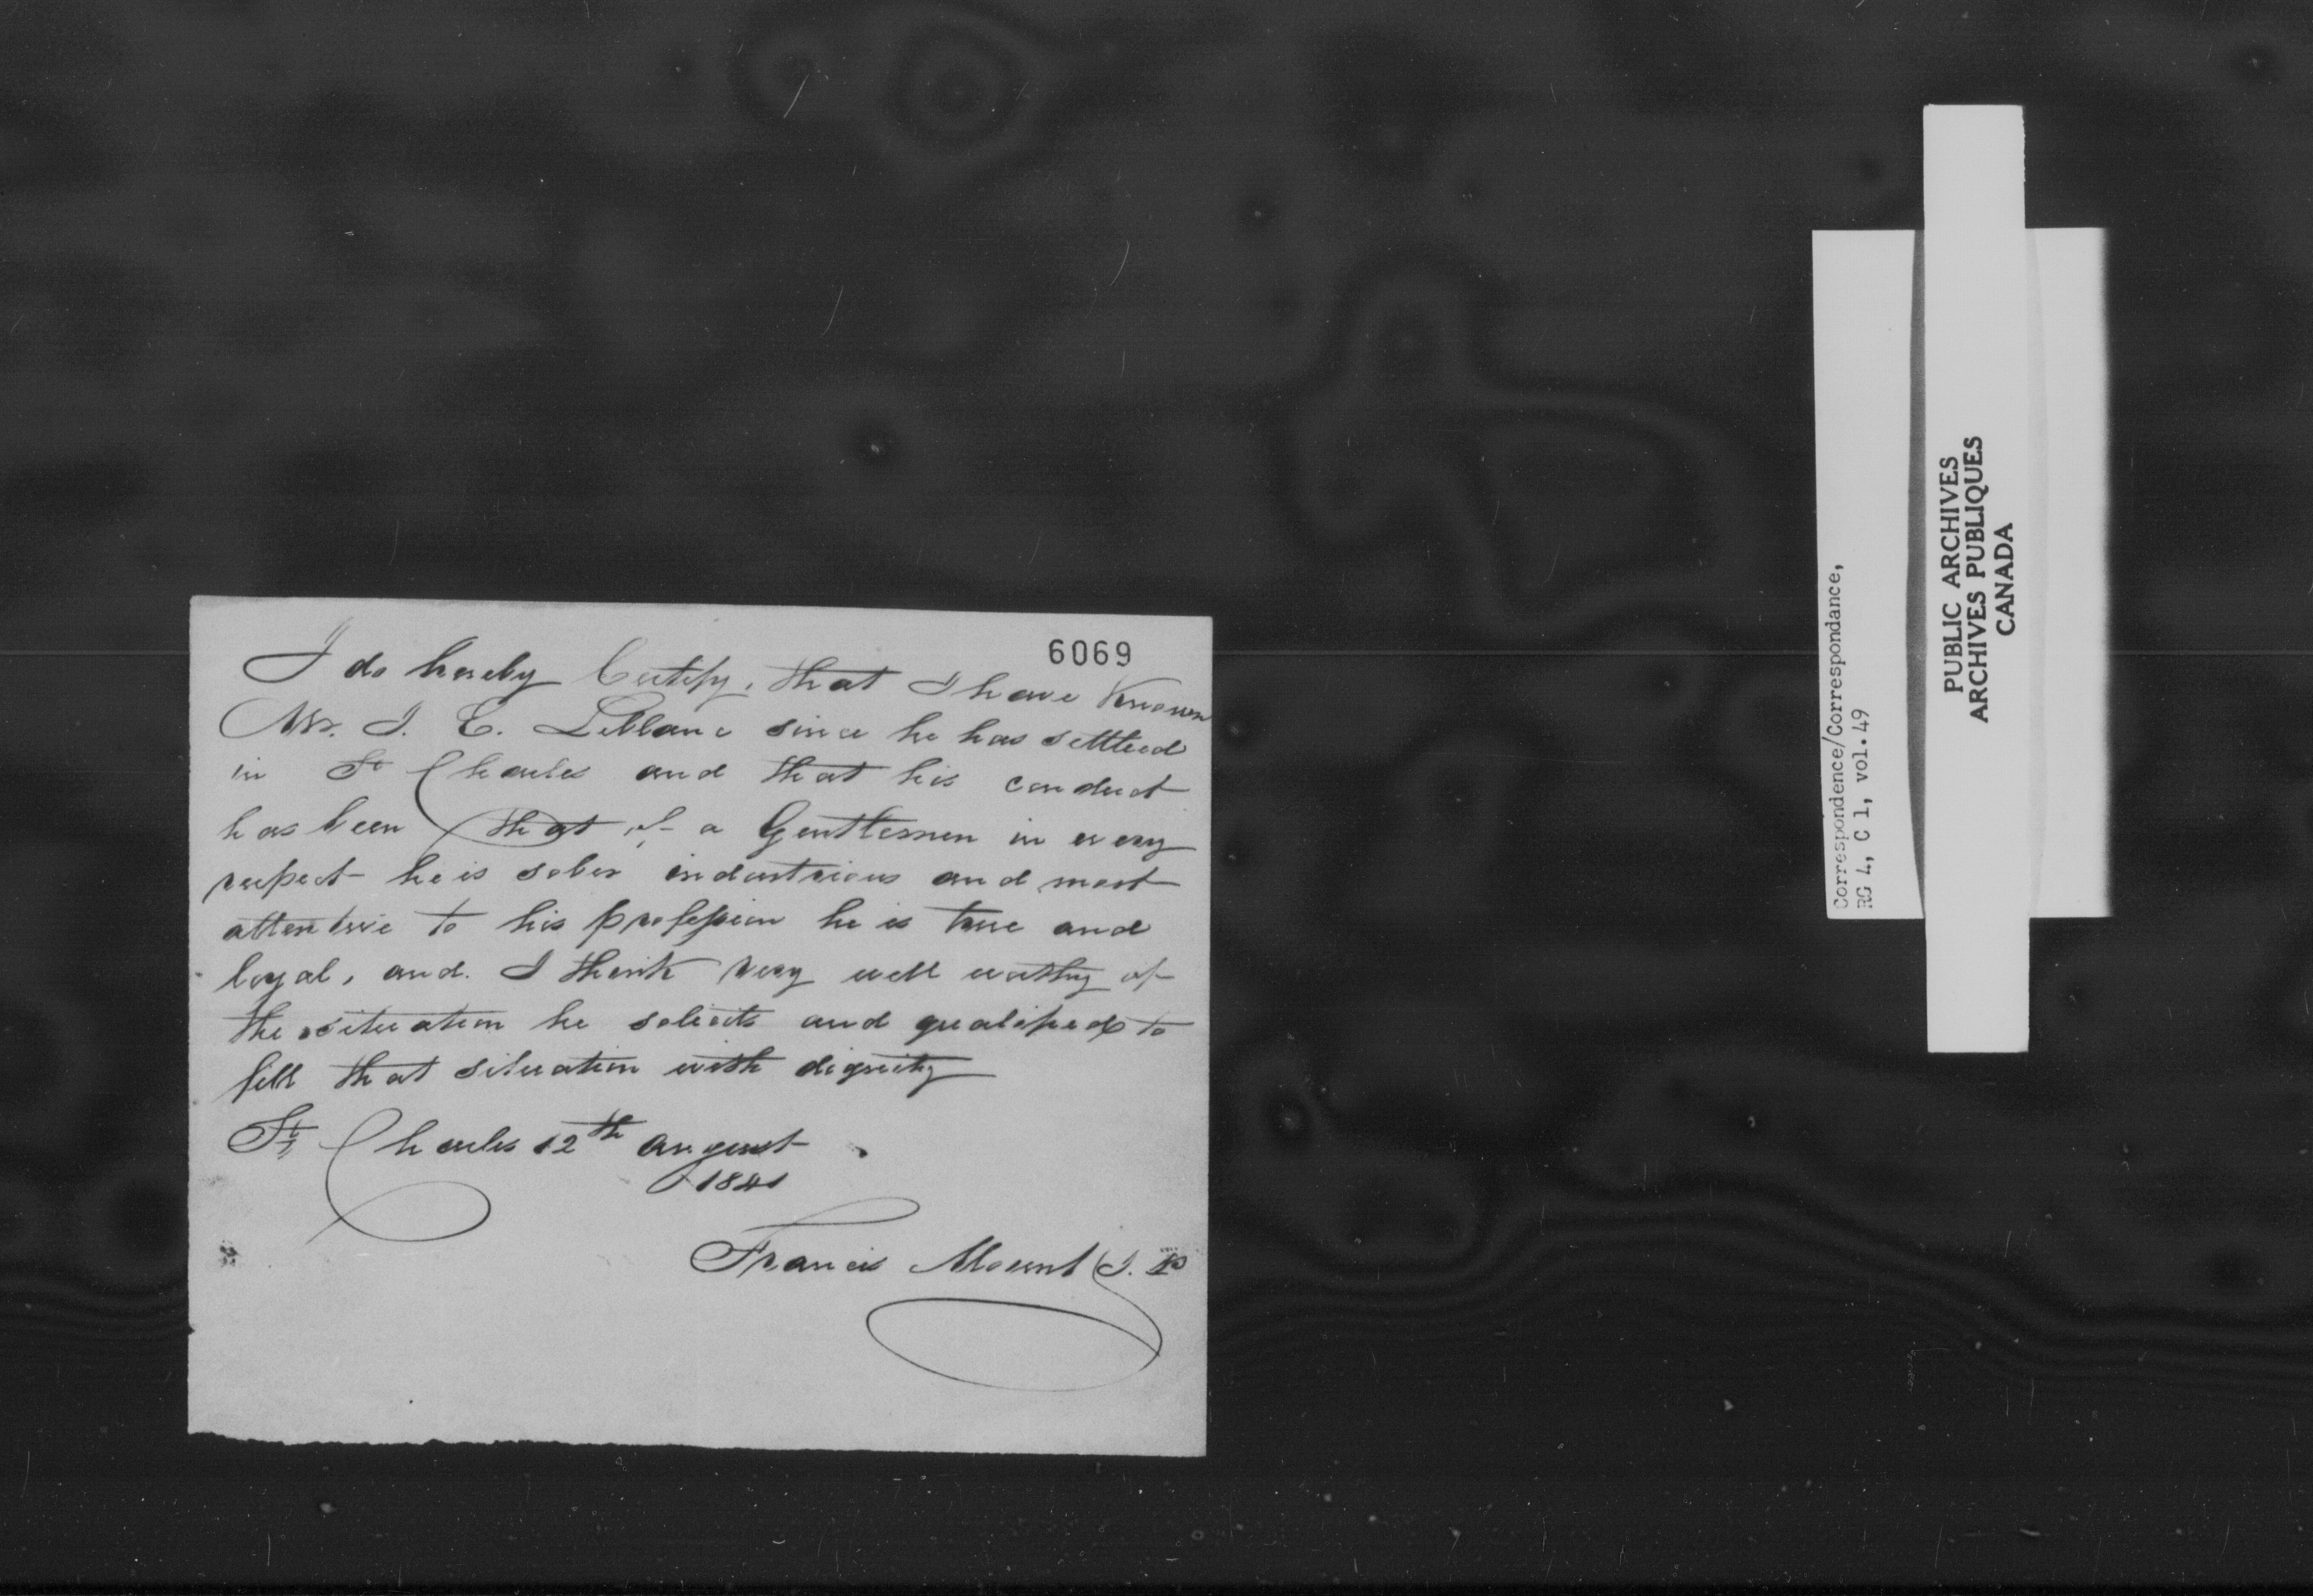 6069
I do hereby Certify, that I have Known
Mr. J. E. Leblanc since he has settled
in St Charles and that his conduct
has been that of a Gentlemen in every
respect he is sober industrious and most
attentive to his profession he is true and
loyal, and I think very well worthy of
the situation he solicits and qualified to
fill that situation with dignity
St Charles 12th august
1841
Francis Mount J. P
Correspondence/Correspondance,
RG 4, C 1, vol.49
PUBLIC ARCHIVES
ARCHIVES PUBLIQUES
CANADA